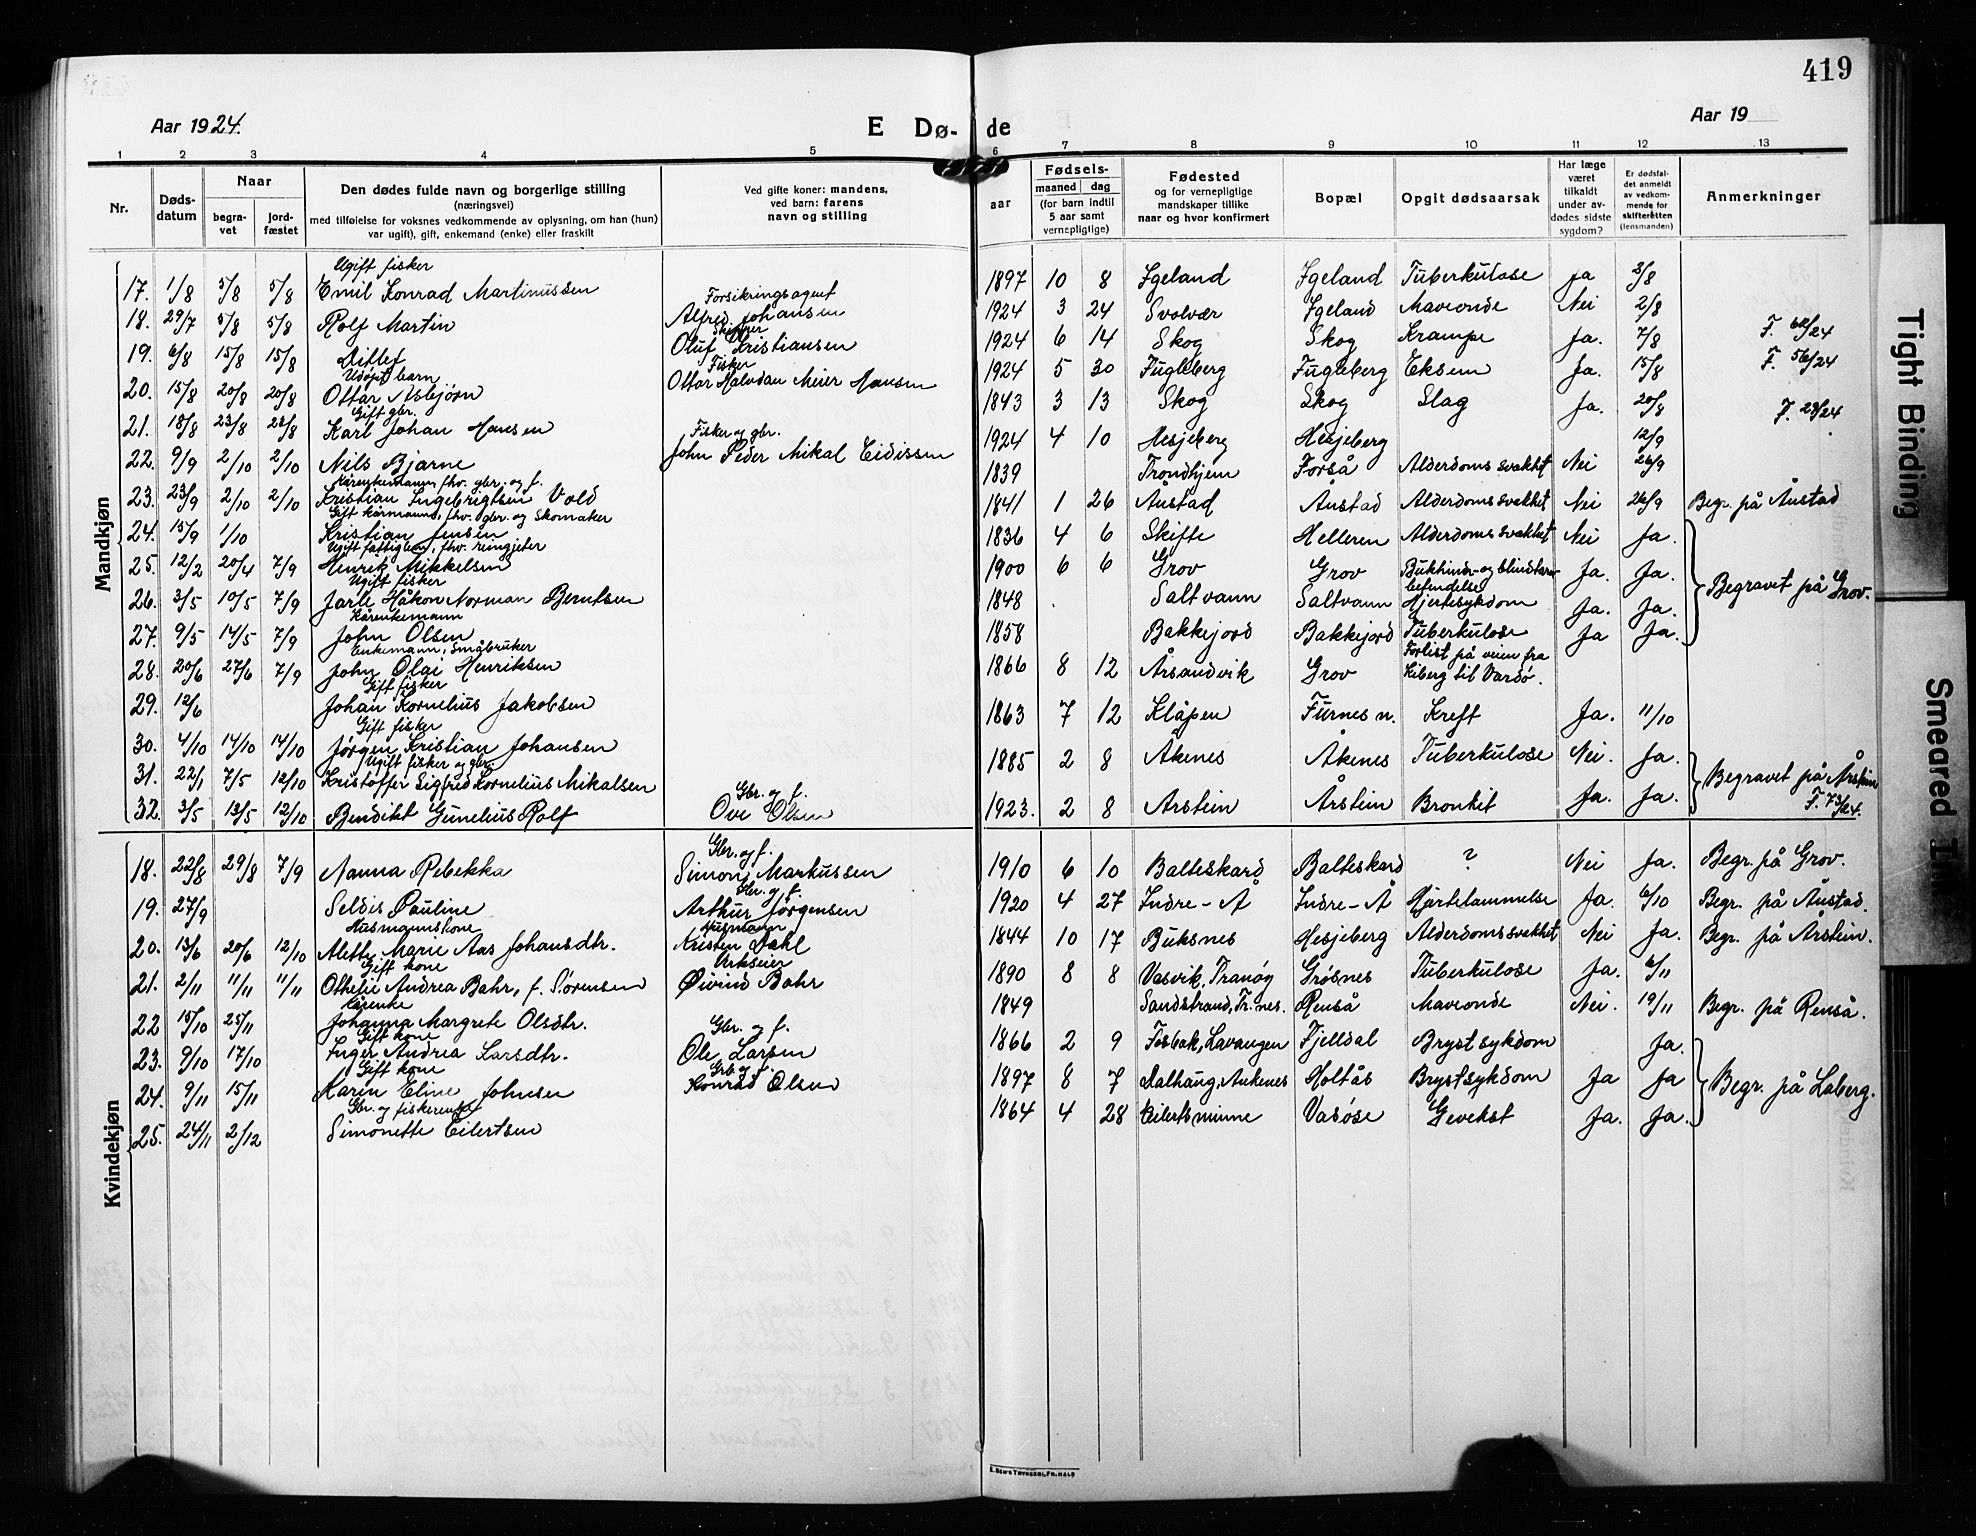 419
Aar 1924.
E Dø- de
Aar 19
1 2 3 4 5 6 7 8 9 10 11 12 13
Nr.
Døds-
datum
Naar
begra-
vet
jord-
fæstet
Den dødes fulde navn og borgerlige stilling
(næringsvei)
med tilføielse for voksnes vedkommende av oplysning, om han (hun)
var ugift), gift, enkemand (enke) eller fraskilt
Ved gifte koner: mandens,
ved barn: farens
navn og stilling
aar
Fødsels-
maaned dag
(for barn indtil
5 aar samt
vernepligtige)
Fødested
og for vernepligtige
mandskaper tillike
naar og hvor konfirmert
Bopæl
Opgit dødsaarsak
Har læge
været
tilkaldt
under av-
dødes sidste
sygdom?
Er dødsfal-
det anmeldt
av vedkom-
mende for
skifteretten
(lensmanden)
Anmerkninger
Mandkjøn
Ugift fisker
17. 1/8 5/8 5/8 Emil Konrad Martinussen 1897 10 8 Igeland Igeland Tuberkulose Ja 2/8
Forsikringsagent
18. 29/7 5/8 5/8 Rolf Martin Alfred Johansen 1924 3 24 Svolvær Igeland Maveonde Nei 2/8
Skipper
19. 6/8 15/8 15/8 Ditlef Oluf Kristiansen 1924 6 14 Skog Skog Krampe Ja. 7/8 F. 62/24
Udøpt barn Fisker
20. 15/8 20/8 20/8 Ottar Asbjørn Ottar Halvdan Meier Hansen 1924 5 30 Fugleberg Fugleberg Eksem Ja. 15/8 F. 56/24
Gift gbr.
21. 18/8 23/8 23/8 Karl Johan Hansen 1843 3 13 Skog Skog Slag Ja. 20/8
Fisker og gbr.
22. 9/9 2/10 2/10 Nils Bjarne John Peder Mikal Eidissen 1924 4 10 Hesjeberg Hesjeberg 12/9 F. 29/24
Kårenkemann, fhv. gbr. og f.
23. 23/9 2/10 2/10 Kristian Ingebrigtsen Vold 1839 Trondhjem Forså Alderdomssvakhet Nei 26/9
Gift kårmann, fhv. gbr. og Skomaker
24. 15/9 1/10 Kristian Jensen 1841 1 26 Ånstad Ånstad Alderdomssvakhet Nei 26/9 Begr. på Ånstad
Ugift fattiglem, fhv. reingjeter
25. 12/2 20/4 7/9 Henrik Mikkelsen 1836 4 6 Skifte Helleren Alderdomssvakhet Nei Ja.
Ugift fisker
26. 3/5 10/5 7/9 Jarle Håkon Norman Berntsen 1900 6 6 Grov Grov Bukhinde- og blindtarm-
befindelse Ja. Ja.
Kårenkemann
27. 9/5 14/5 7/9 John Olsen 1848 Saltvann Saltvann Hjertesykdom Ja. Ja.
Begravet på Grov.
Enkemann, Småbruker
28. 20/6 27/6 7/9 John Olai Henriksen 1858 Bakkejord Bakkejord Tuberkulose Ja Ja.
Gift fisker
29. 12/6 Johan Kornelius Jakobsen 1866 8 12 Årsandvik Grov Forlist på veien fra
Kiberg til Vardø.
Gift fisker
30. 4/10 14/10 14/10 Jørgen Kristian Johansen 1863 7 12 Klåpen Furnes n. Kreft Ja. 11/10
Ugift fisker og gbr.
31. 22/1 7/5 12/10 Kristoffer Sigfred Kornelius Mikalsen 1885 2 8 Åkenes Åkenes Tuberkulose Nei. Ja.
Begravet på Årstein
Gbr. og f.
32. 3/5 13/5 12/10 Bendikt Gunelius Rolf Ove Olsen 1923. 2 8 Årstein Årstein Bronkit Ja. Ja. F. 73/24.
Kvindekjøn
Gbr. og f.
18. 22/8 29/8 7/9 Nanna Rebekka Simon Markussen 1910 6 10 Balteskard Balteskard ? Nei Ja. Begr. på Grov.
Gbr. og f.
19. 27/9 Seldis Pauline Arthur Jørgensen 1920 4 27 Indre-Å Indre-Å Hjertelammelse Ja. 6/10 Begr. på Ånstad.
Husmannskone Husmann
20. 13/6 20/6 12/10 Alette Marie Aas Johansdtr. Kristen Dahl 1844 10 17 Buksnes Hesjeberg Alderdomssvakhet Nei Ja. Begr. på Årstein.
Gift kone Urkseier
21. 2/11 11/11 11/11 Othelie Andrea Bahr, f. Sørensen Øivind Bahr 1890 8 8 Vasvik, Tranøy Grøsnes Tuberkulose Ja. 6/11
Kårenke
22 15/10 25/11 Johanna Margrete Olsdtr. 1849 Sandstrand, Tr.nes. Renså Maveonde Nei. 19/11 Begr. på Renså.
Gift kone Gbr. og f.
23. 9/10 17/10 Inger Andrea Larsdtr. Ole Larsen 1866 2 9 Fosbak, Lavangen Fjelldal Brystsykdom Ja.
Gift kone Grb. og f.
24. 9/11 15/11 Karin Eline Johnsen Konrad Olsen 1897 8 7 Dalhaug, Ankenes Holtås Brystsykdom Ja Ja
Begr. på Laberg.
Gbr. og fiskerenke
25. 24/11 2/12 Simonette Eilertsen 1864 4 28 Eilertsminne Vasøse Gevekst Ja. Ja.
E. SEM'S TRYKKERI, FR.HALD
Tight Binding
Smeared Ink